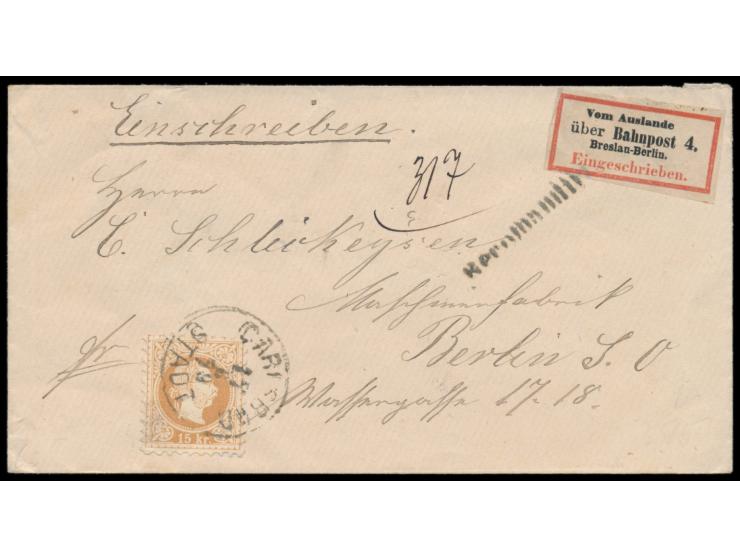 Einschreiben.
Vom Auslande
über Bahnpost 4.
Breslau-Berlin.
Eingeschrieben.
317
Herrn
C. Schlickeysen
Maschinenfabrik
Berlin S. O
Wassergasse 17-18.
fr
STADT
15 Kr.